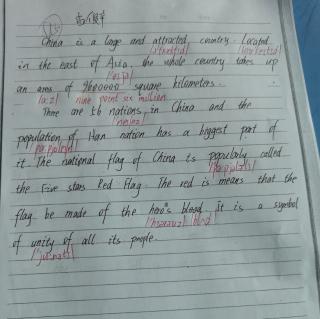 China is a large and attracted country. Located
in the east of Asia, the whole country takes up
an area of 9600000 square kilometers.
nine point six million
There are 56 nations in China and the
population of Han nation has a biggest part of
it. The national flag of China is popularly called
the Five stars Red Flag. The red is means that the
flag be made of the hero's blood, it is a symbol
of unity of all its people.